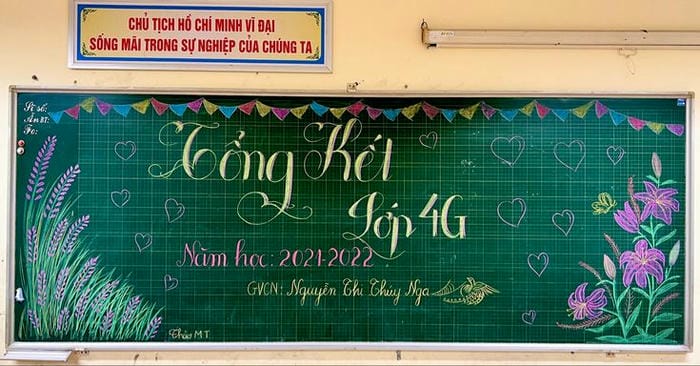 CHỦ TỊCH HỒ CHÍ MINH VĨ ĐẠI
SỐNG MÃI TRONG SỰ NGHIỆP CỦA CHÚNG TA
Sĩ số:
Ăn BT:
Tổng Kết
Lớp 4G
Năm học: 2021-2022
GVCN: Nguyễn Thị Thúy Nga
Thảo M.T